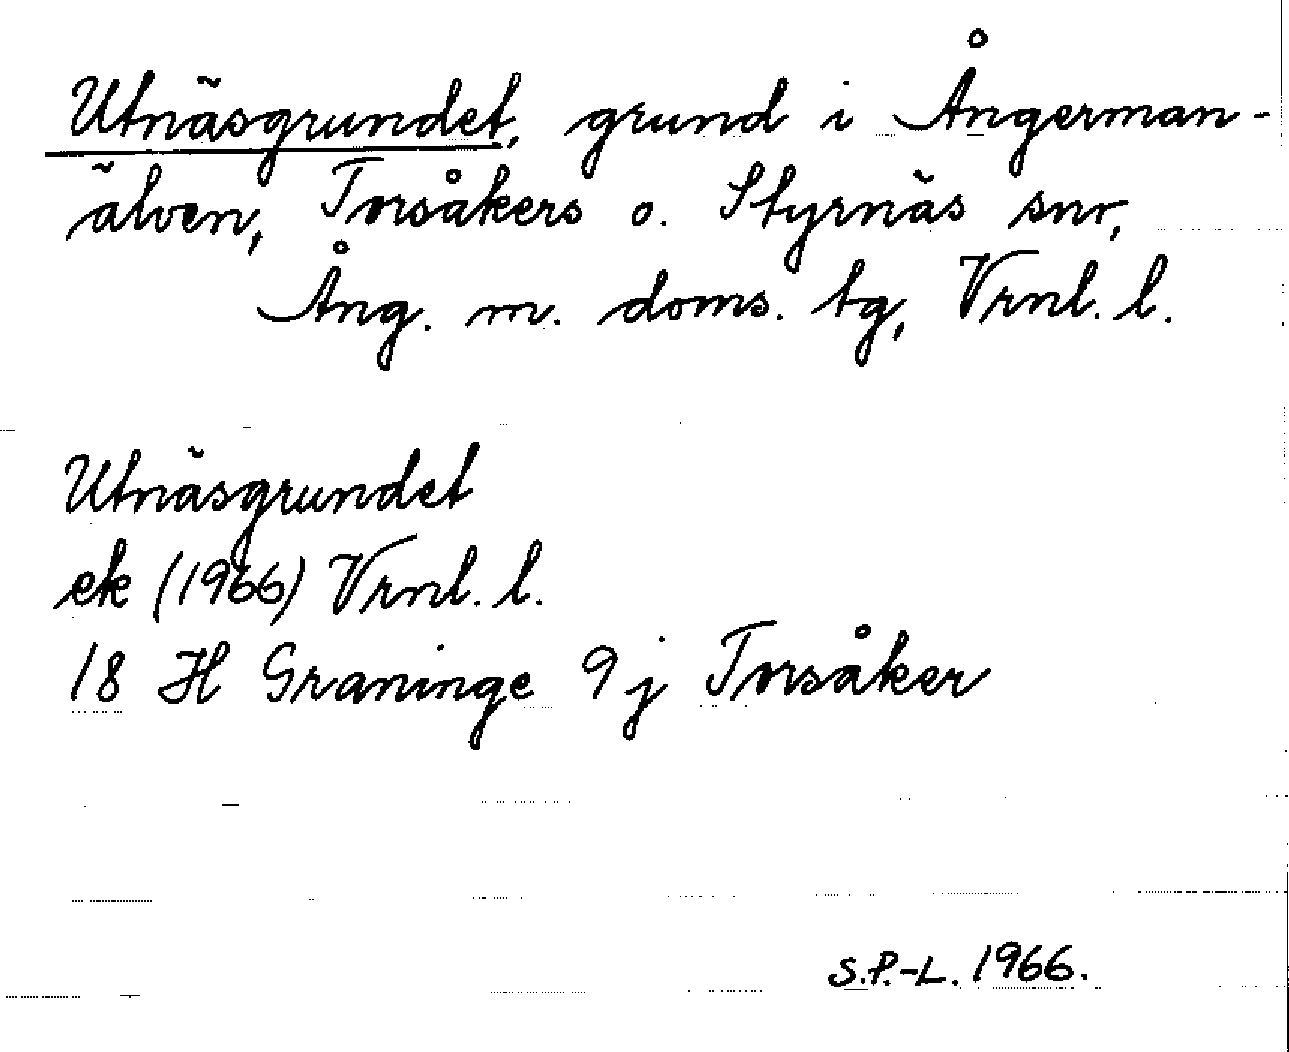 Utnäsgrundet, grund i Ångerman-
älven, Torsåkers o. Styrnäs snr,
Ång. m. doms. tg, Vrnl. l.
Utnäsgrundet
ek (1966) Vrnl. l.
18 H Graninge 9 j Torsåker
S.P.-L. 1966.